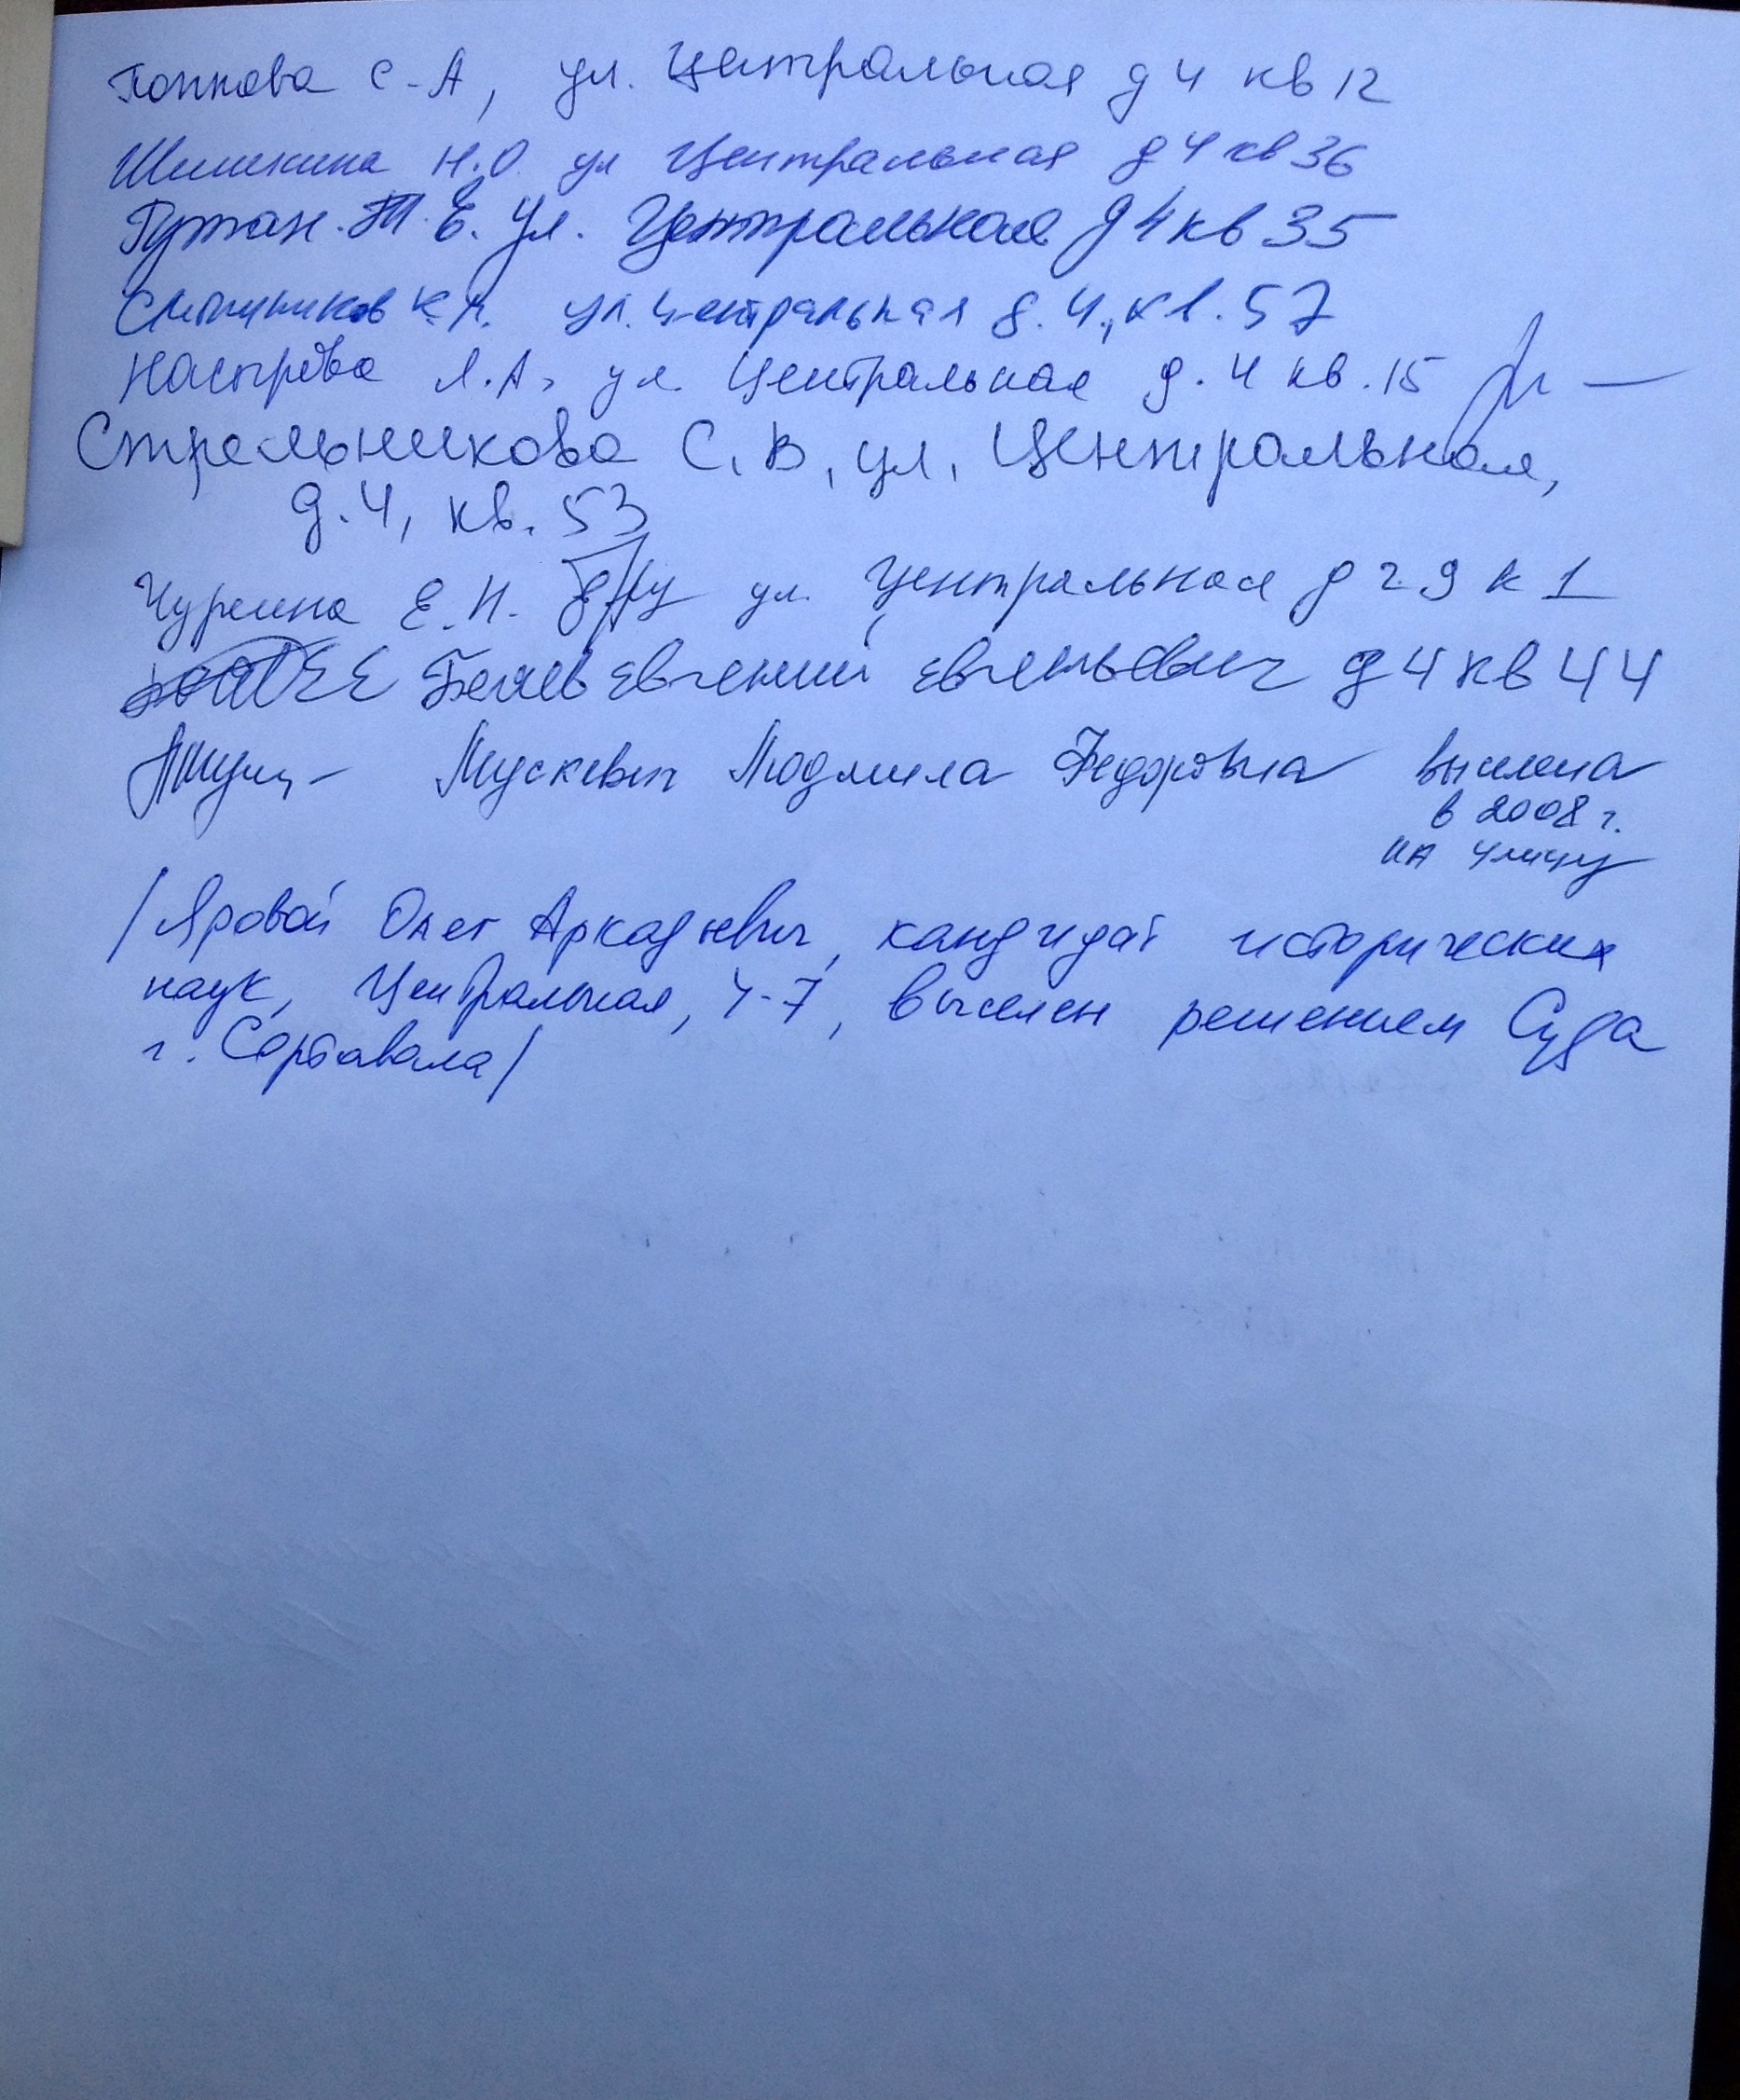 Попкова С.А, ул. Центральная д 4 кв 12
Шишкина Н.О. ул Центральная д 4 кв 36
Гутан. Т. Е. Ул. Центральная д 4 кв 35
К.А. ул. Центральная д. 4., кв. 57
Насырова Л.А, ул. Центральная д. 4 кв. 15
Стрельникова С, В, ул, Центральная,
д. 4, кв. 53
Чурсина Е. Н. ул. Центральная д 29 к 1
Беляев евгений евгеньевич д 4 кв 44
Мускевич Людмила Федоровна выселена
в 2008 г.
на улицу
/Яровой Олег Аркадьевич, кандидат исторических
наук, Центральная, 4-7, выселен решением Суда
г. Сортавала/